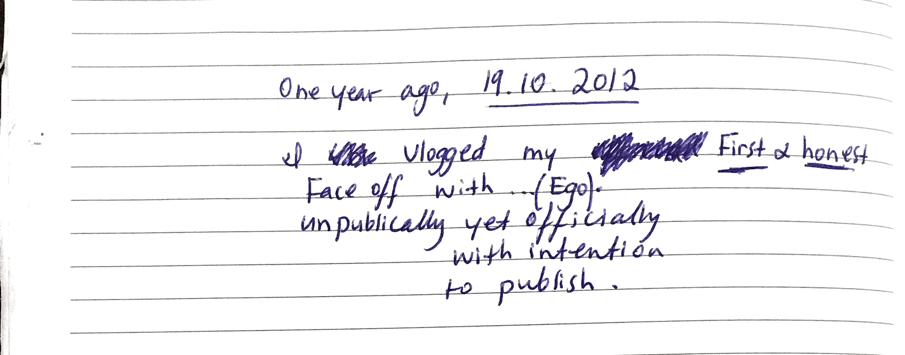 One year ago, 19.10.2012
I Vlogged my First & honest
Face off with ...(Ego).
unpublically yet officially
with intention
to publish.